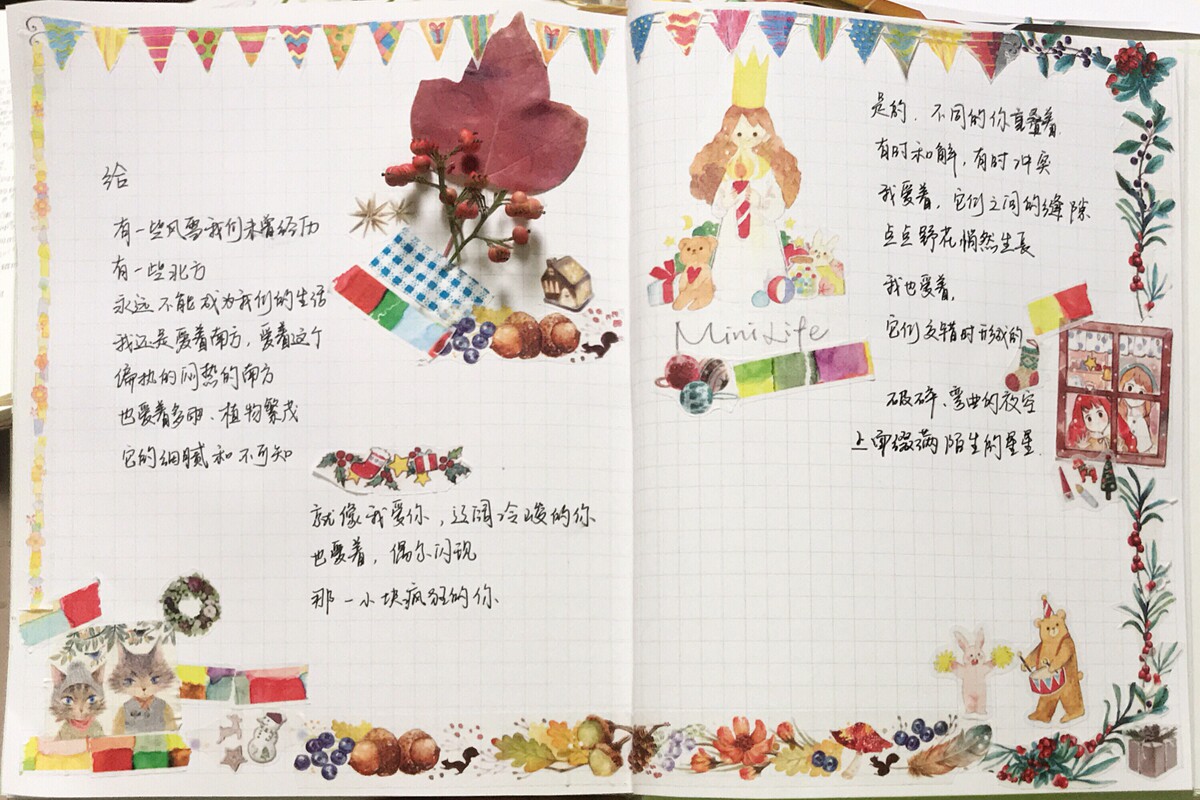 给
有一些风雪我们未曾经历
有一些北方
永远不能成为我们的生活
我还是爱着南方，爱着这个
偏执的闷热的南方
也爱着多雨、植物繁茂
它的细腻和不可知
就像我爱你，辽阔冷峻的你
也爱着，偶尔闪现
那一小块疯狂的你
Mini Life
是的，不同的你重叠着
有时和解，有时冲突
我爱着，它们之间的缝隙
点点野花悄然生长
我也爱着，
它们交错时形成的
破碎、弯曲的夜空
上面缀满陌生的星星.